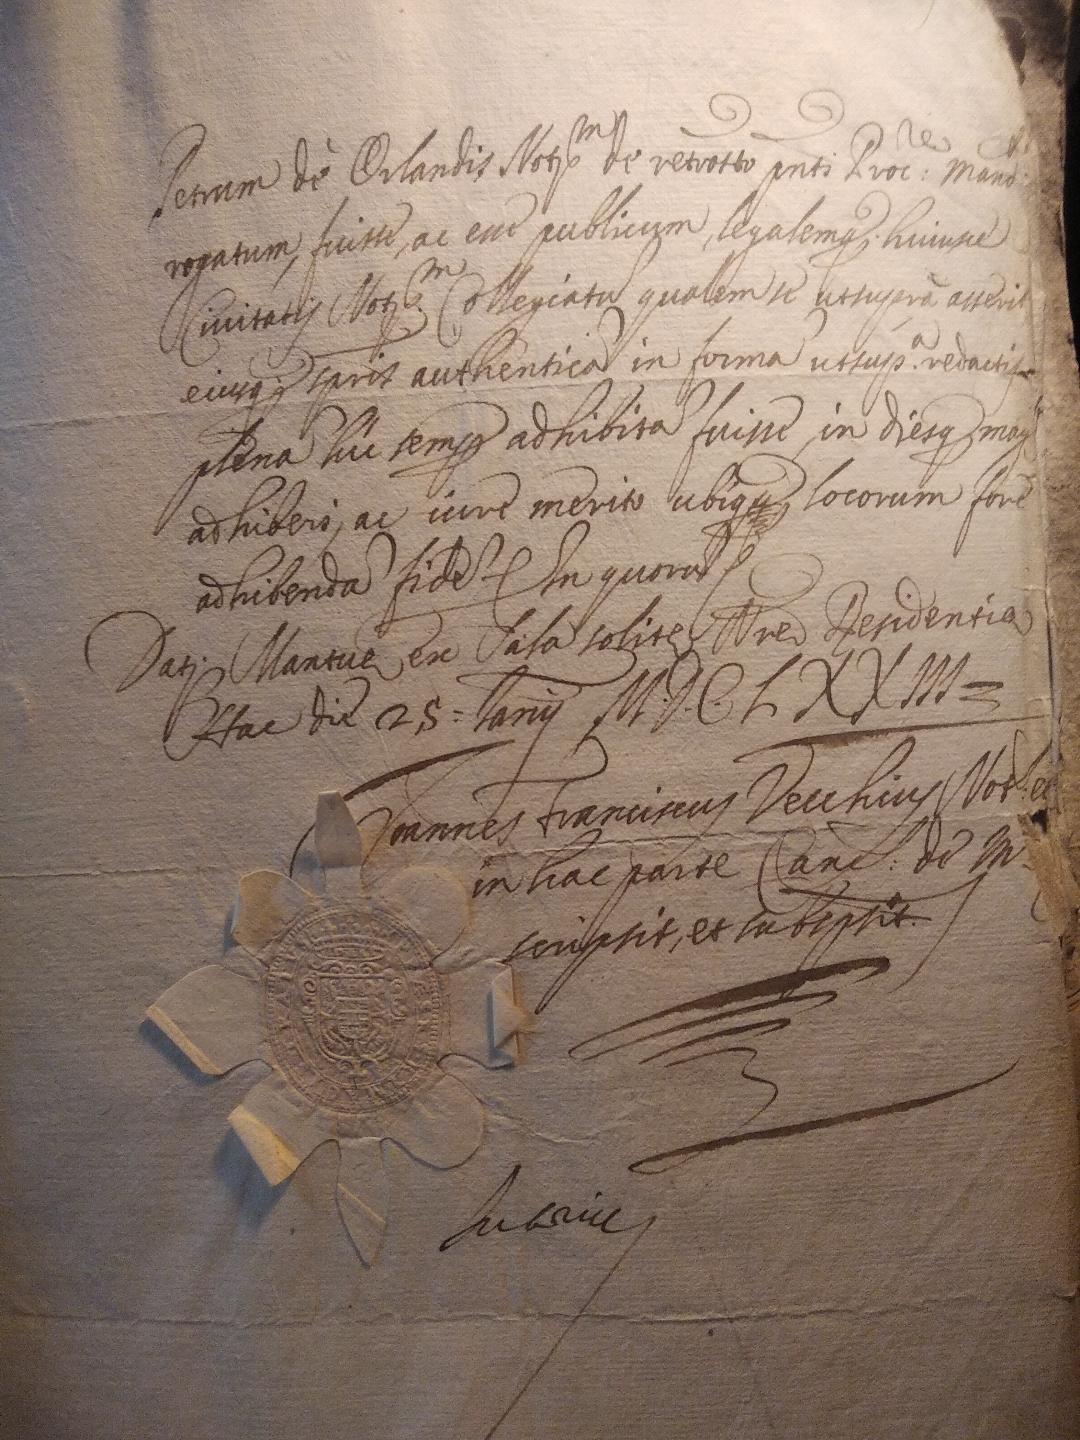 Petrum de Orlandis Not.m de retrotto pnti Proc.re Mand.
rogatum, fuisse, ac esse publicum, legalemq; huiusce
Ciuitatis Not.m Collegiatũ qualem se utsuprà asserit
eiusq; scriptis authenticà in forma utsup.a redactis
plenà hic semp adhibità fuisse, in diesq; mag
adhiberi, ac iure merito ubiq; locorum fore
adhibendà fidẽ In quorũ
Dat. Mantue ex Sala solite Nre Residentie
Hac die 25 = M.D.C.LXXIII =
Joannes Franciscus Vecchius Not. et
in hac parte Canc.: de M.
scripsit, et subspsit.